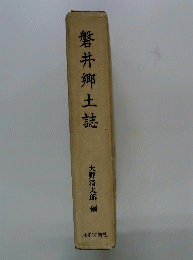 磐井郷土誌
大野清太郎 編